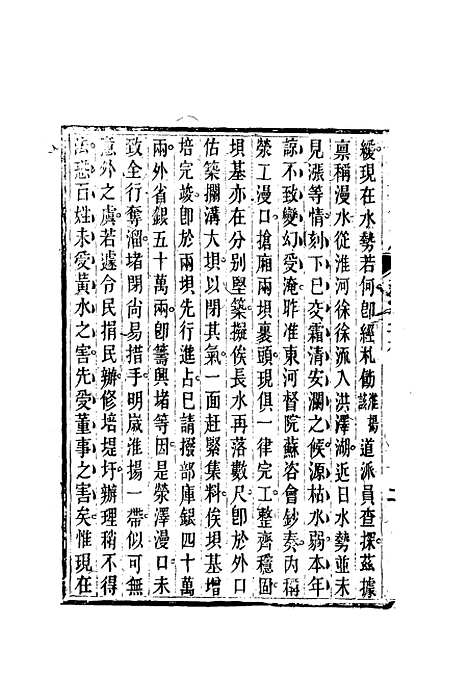 緩現在水勢若何卽經札飭淮揚該道派員查探茲據
稟稱漫水從淮河徐徐派入洪澤湖近日水勢並未
見漲等情刻下巳交霜清安瀾之候源枯水弱本年
諒不致變幻受淹昨准東河督院蘇咨會鈔奏內稱
滎工漫口搶廂兩壩裹頭現俱一律完工整齊穩固
壩基亦在分別堅築擬俟長水再落數尺卽於外口
估築攔溝大壩以閉其氣一面赶緊集料俟壩基增
培完竣卽於兩壩先行進占巳請撥部庫銀四十萬
兩外省銀五十萬兩卽籌興堵等因是滎澤漫口未
致全行奪溜堵閉尚易措手明歲淮揚一帶似可無
意外之虞若遽令民捐民辦修培堤圩辦理稍不得
法恐百姓未受黃水之害先受董事之害矣惟現在
二